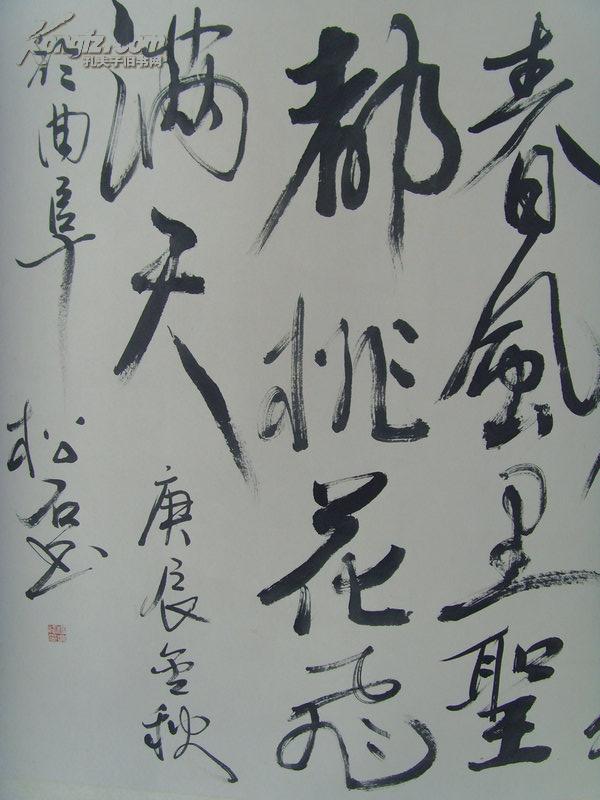 春風里聖
都桃花飛
满天
庚辰金秋
於曲阜
松石书
Kongfz.com
孔夫子旧书网